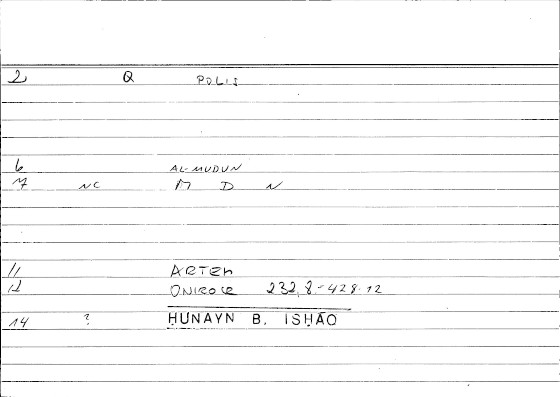 2 Q POLIS
6 AL-MUDUN
7 NC M D N
11 ARTEM
12 ONIROCR 232,8-428.12
14 ? ḤUNAYN B. ISḤĀQ